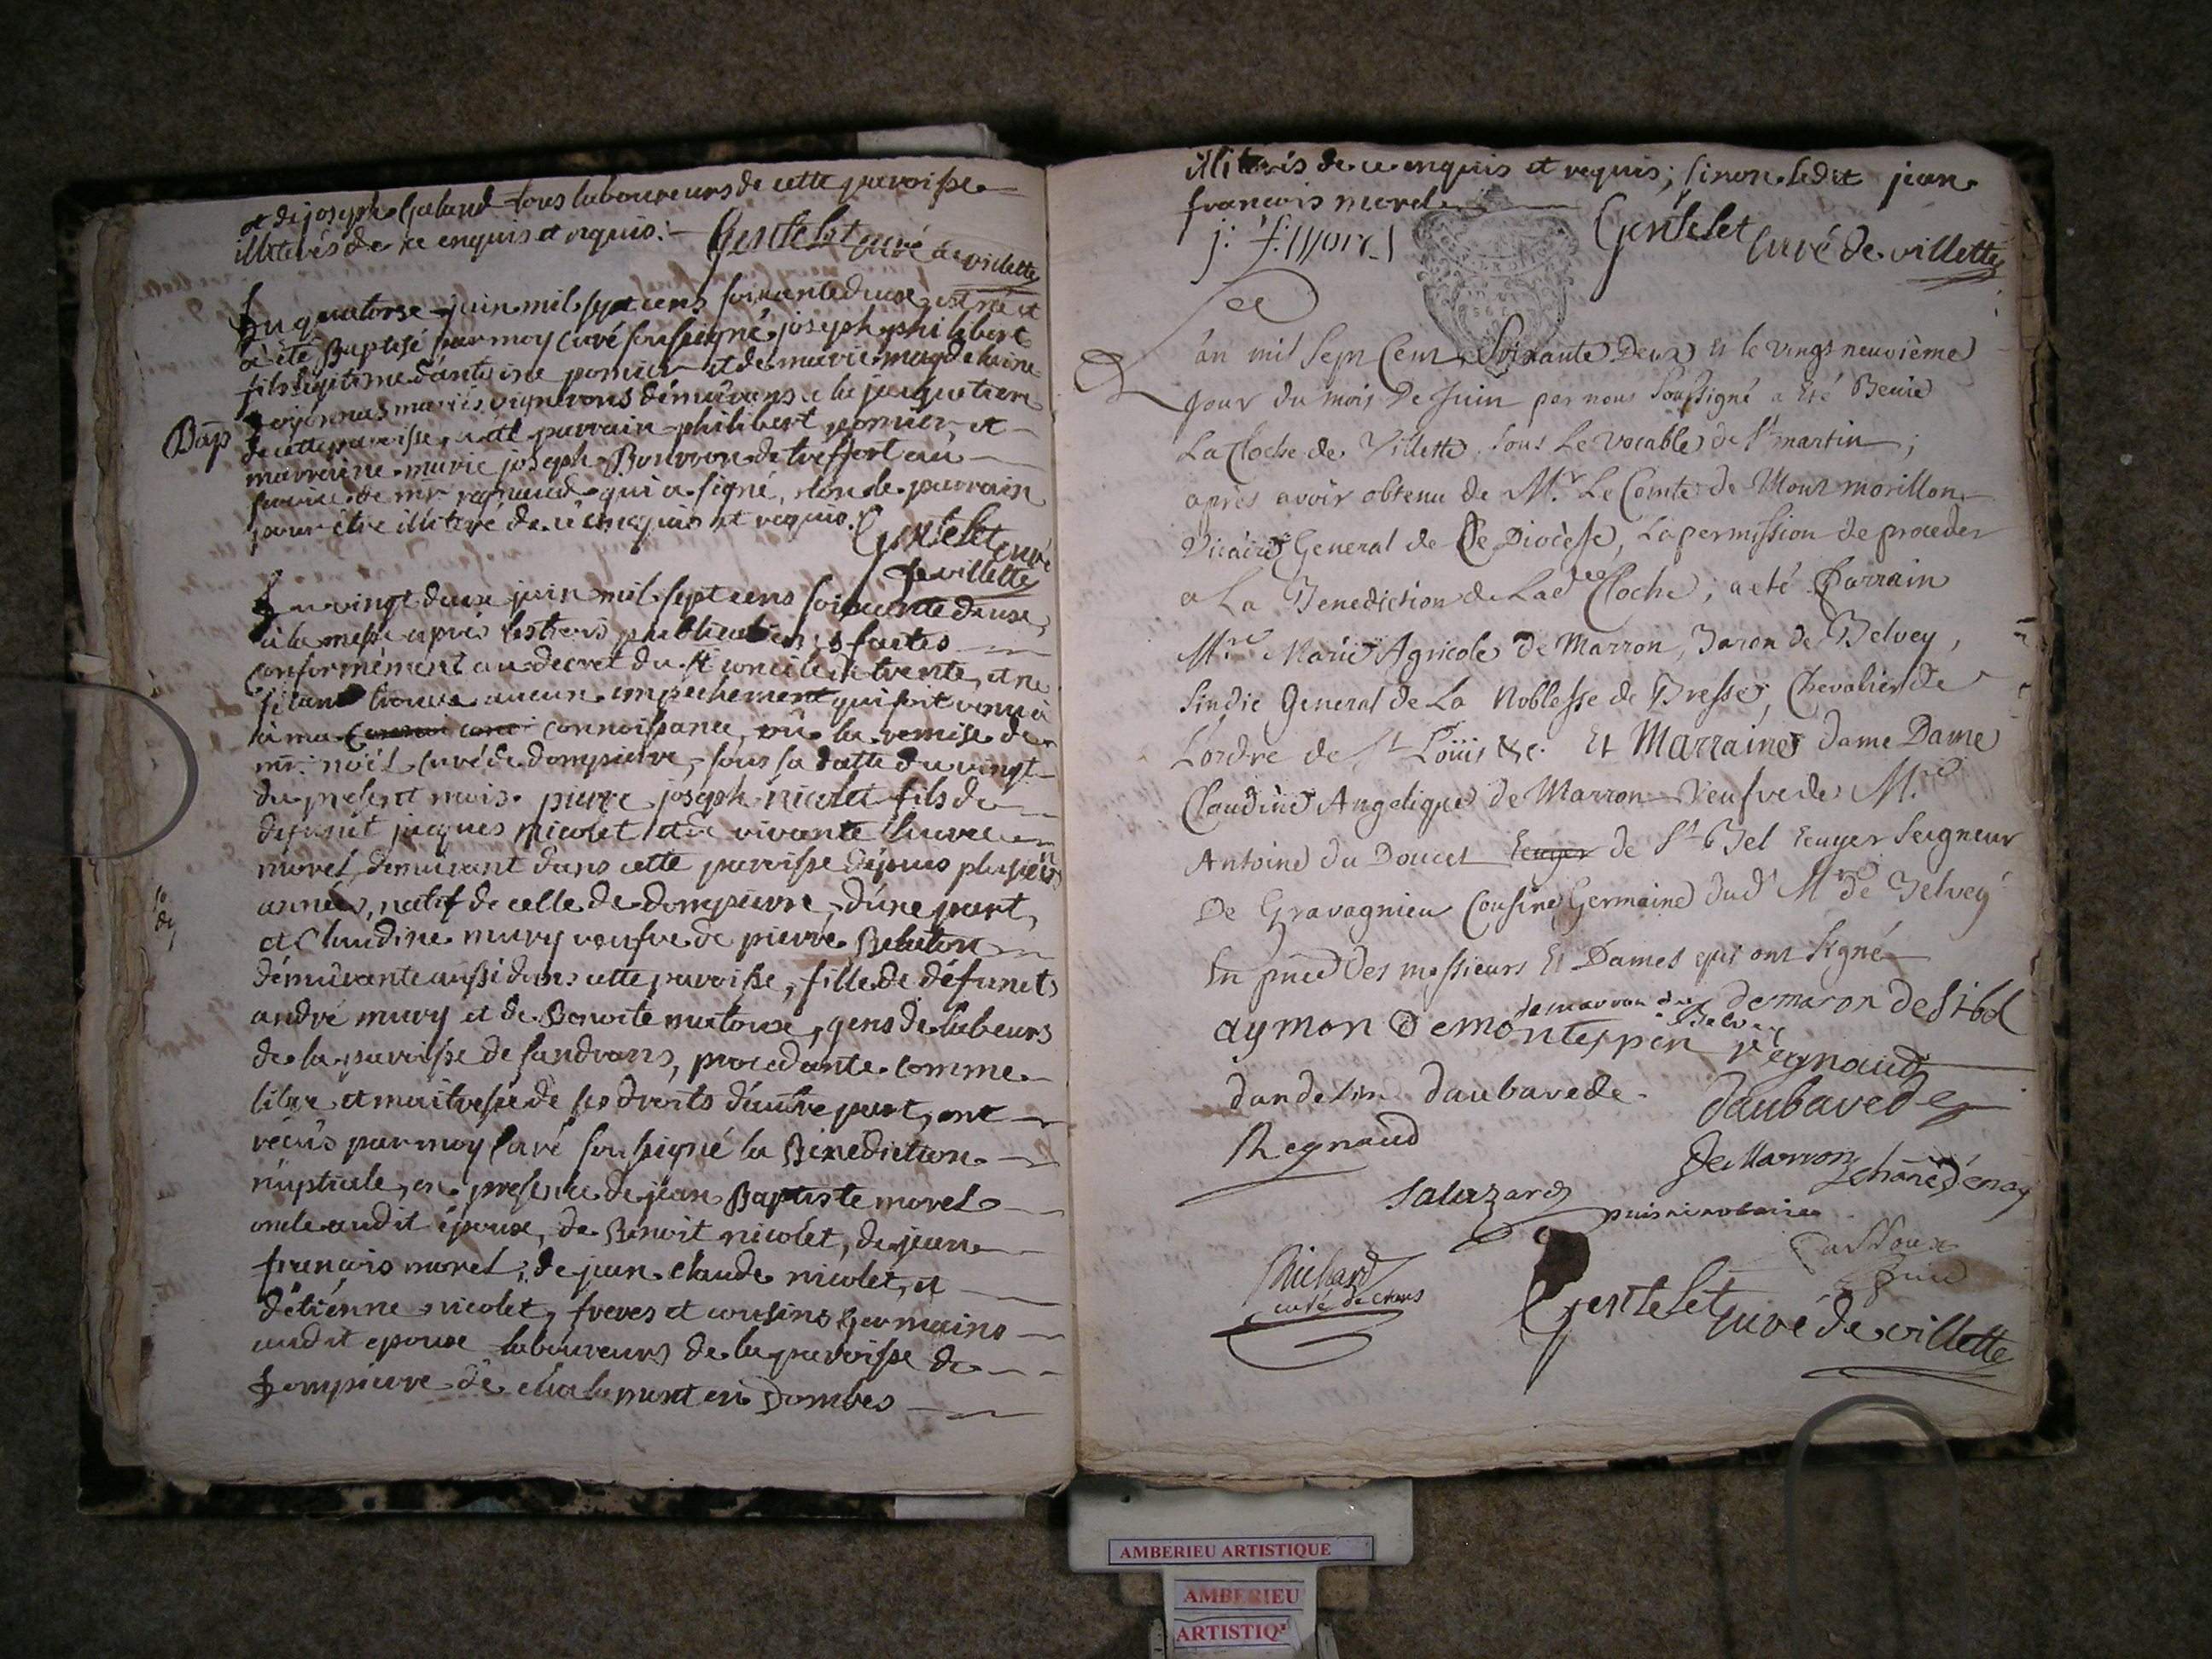 et de joseph Galand tous laboureurs de cette paroisse
illiterés de ce enquis et requis. Gentelet curé de villette
Du quatorse juin mil sept cens soixante deux est né et
a été Baptisé par moy curé soussigné joseph philibert
fils legitime d'antoine ponier et de marie magdelaine
mariés vignerons démeurans a la
Bap
de cette paroisse, a été parrain philibert ponier, et
marraine marie joseph Bourron de treffort au
service de mr regnaud qui a signé, non le parrain
pour être illiteré de ce enquis et requis. Gentelet curé
de villette
Du vingt deux juin mil sept cens soixante deux,
à la messe après les trois publications faites
conformément au decret du st concile de trente, et ne
s'étant trouvé aucun empechement qui soit venu à
à ma connoissance, vû la remise de
mr. noël curé de dompierre, sous la datte du vingt
du present mois. pierre joseph nicolet fils de
defunct jacques nicolet et de vivante
morel demeurant dans cette paroisse depuis plusieurs
années, natif de celle de dompierre, d'une part,
et Claudine mury veufve de pierre Beluton
démeurante aussi dans cette paroisse, fille de défuncts
andré mury et de Benoite matoux, gens de labeurs
de la paroisse de sandrans, procedante comme
libre et maitresse de ses droits d'autre part, ont
reçus par moy curé soussigné la Bénédiction
nuptiale, en presence de jean Baptiste morel
oncle audit époux, de Benoit nicolet, de jean
françois morel, de jean claude nicolet, et
d'étiénne nicolet, freres et cousins germains
audit epoux laboureurs de la paroisse de
Dompierre de chalamont en Dombes
illiterés de ce enquis et requis; sinon ledit jean
françois morel
j: f: morel Gentelet curé de villette
L'an mil Sept Cent Soixante Deux Et le vingt neuvième
jour du mois De Juin par nous Soussigné a Eté Benie
La Cloche de Villette sous Le Vocable de St martin;
après avoir obtenu de Mr. Le Comte de Montmorillon
Vicaire General de Ce Diocèse, La permission de proceder
a La Benediction de Lade Cloche; a eté Parrain
Mre Marie Agricole de Marron, Baron de Belvey,
Sindic General de La Noblesse de Bresse, Chevalier de
L'ordre de St Loüis &c. Et Marraine dame Dame
Claudine Angelique de Marron Veufve de Mre
Antoine du Doucet Ecuyer de St Bel Ecuyer Seigneur
De Gravagnieu Cousine Germaine dud Mre de Belvey
En pnce des messieurs Et Dames qui ont signé
de marron de Belvey demaron de St bel
aymon Demontespin regnaud
dandelin daubarede daubarede
Regnaud
De Marron
Salazard
Richard
curé de crans
Gentelet curé de villette
AMBERIEU ARTISTIQUE
AMBERIEU
ARTISTIQ